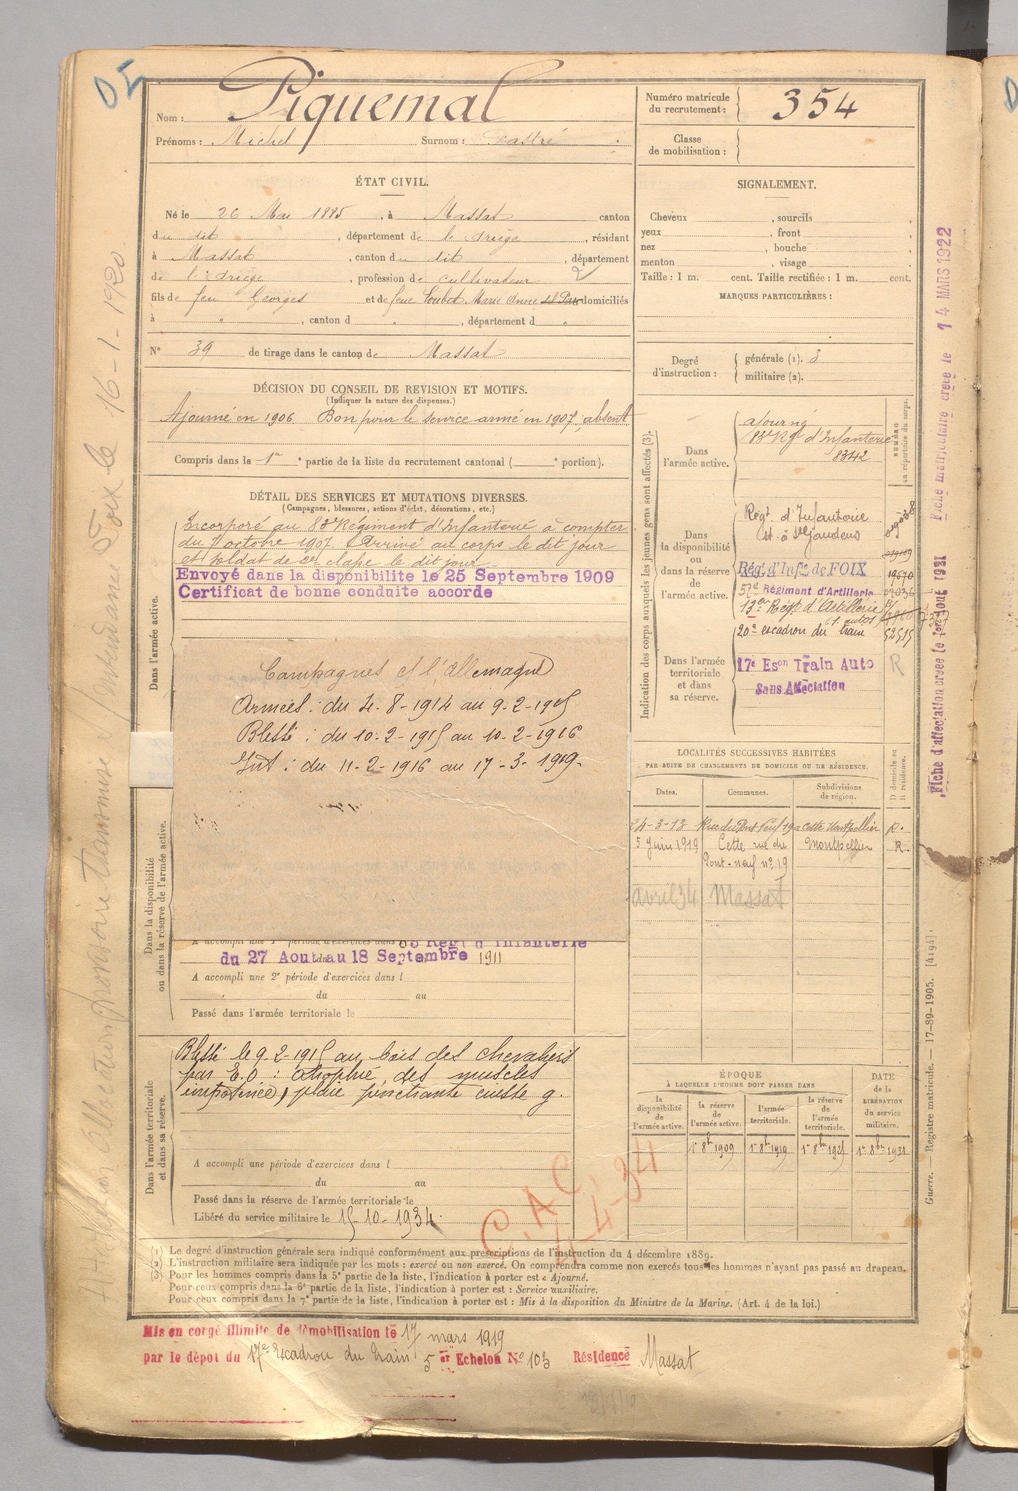 Nom : Piquemal
Prénoms : Michel Surnom :
Numéro matricule du recrutement : 354
Classe de mobilisation :
ÉTAT CIVIL.
Né le 26 Mai 1885, à Massat canton
du dit, département de l'Ariège, résidant
à Massat, canton du dit, département
de l'Ariège, profession de cultivateur
fils de feu Georges et de feue Loubet Marie Anne domiciliés
à " , canton d " , département d "
N° 39 de tirage dans le canton de Massat
DÉCISION DU CONSEIL DE REVISION ET MOTIFS.
(Indiquer la nature des dispenses.)
Ajourné en 1906 Bon pour le service armé en 1907, absent
Compris dans la 1re partie de la liste du recrutement cantonal ( portion).
DÉTAIL DES SERVICES ET MUTATIONS DIVERSES.
(Campagnes, blessures, actions d'éclat, décorations, etc.)
Dans l'armée active.
Incorporé au 83e Régiment d'Infanterie à compter
du 7 octobre 1907. Arrivé au corps le dit jour
et soldat de 2e classe le dit jour
Envoyé dans la disponibilite le 25 Septembre 1909
Certificat de bonne conduite accorde
Campagnes c/ l'Allemagne
Armées : du 4-8-1914 au 9-2-1915
Blessé : du 10-2-1915 au 10-2-1916
Int : du 11-2-1916 au 17-3-1919.
Dans la disponibilité ou dans la réserve de l'armée active.
A accompli une 1re période d'exercices dans 83 Régt d'Infanterie
du 27 Aout au 18 Septembre 1911
A accompli une 2e période d'exercices dans l
du au
Passé dans l'armée territoriale le
Dans l'armée territoriale et dans sa réserve.
Blessé le 9-2-1915 au bois des chevaliers
par E.O : atrophie des muscles
plaie pénétrante cuisse g.
A accompli une période d'exercices dans l
du au
Passé dans la réserve de l'armée territoriale le
Libéré du service militaire le 15-10-1934
C.A.C.
4-34
SIGNALEMENT.
Cheveux , sourcils
yeux , front
nez , bouche
menton , visage
Taille : 1 m. cent. Taille rectifiée : 1 m. cent.
MARQUES PARTICULIÈRES :
Degré d'instruction : générale (1). 3
militaire (2).
Indication des corps auxquels les jeunes gens sont affectés (3).
NUMÉRO au répertoire du corps.
Dans l'armée active.
ajourné
83e Rgt d'Infanterie
8342
Dans la disponibilité ou dans la réserve de l'armée active.
Regt d'Infanterie
et à St Gaudens
Rég. d'Infie de FOIX
19670
57e Régiment d'Artillerie
13e Régt d'Artillerie
20e escadron du train
52515
Dans l'armée territoriale et dans sa réserve.
17e Eson Train Auto
R
Sans Affectation
LOCALITÉS SUCCESSIVES HABITÉES
PAR SUITE DE CHANGEMENTS DE DOMICILE OU DE RÉSIDENCE.
Dates. Communes. Subdivisions de région. D domicile ou R résidence.
24-3-13 Rue du Pont Neuf 19 Cette Montpellier R.
5 Juin 1919 Cette rue du Pont-neuf n° 19 Montpellier R.
avril 34 Massat
ÉPOQUE
À LAQUELLE L'HOMME DOIT PASSER DANS
la disponibilité de l'armée active. la réserve de l'armée active. l'armée territoriale. la réserve de l'armée territoriale. DATE de la LIBÉRATION du service militaire.
1er 8bre 1909 1er 8bre 1919
(1) Le degré d'instruction générale sera indiqué conformément aux prescriptions de l'instruction du 4 décembre 1889.
(2) L'instruction militaire sera indiquée par les mots : exercé ou non exercé. On comprendra comme non exercés tous les hommes n'ayant pas passé au drapeau.
(3) Pour les hommes compris dans la 5e partie de la liste, l'indication à porter est « Ajourné.
Pour ceux compris dans la 6e partie de la liste, l'indication à porter est : Service auxiliaire.
Pour ceux compris dans la 7e partie de la liste, l'indication à porter est : Mis à la disposition du Ministre de la Marine. (Art. 4 de la loi.)
Mis en congé illimité de démobilisation le 17 mars 1919
par le dépot du 17e Escadron du Train 5er Echelon N° 103 Résidence Massat
Fiche matriculaire créée le 14 MARS 1922
Guerre. — Registre matricule. — 17-89-1905. [4194].